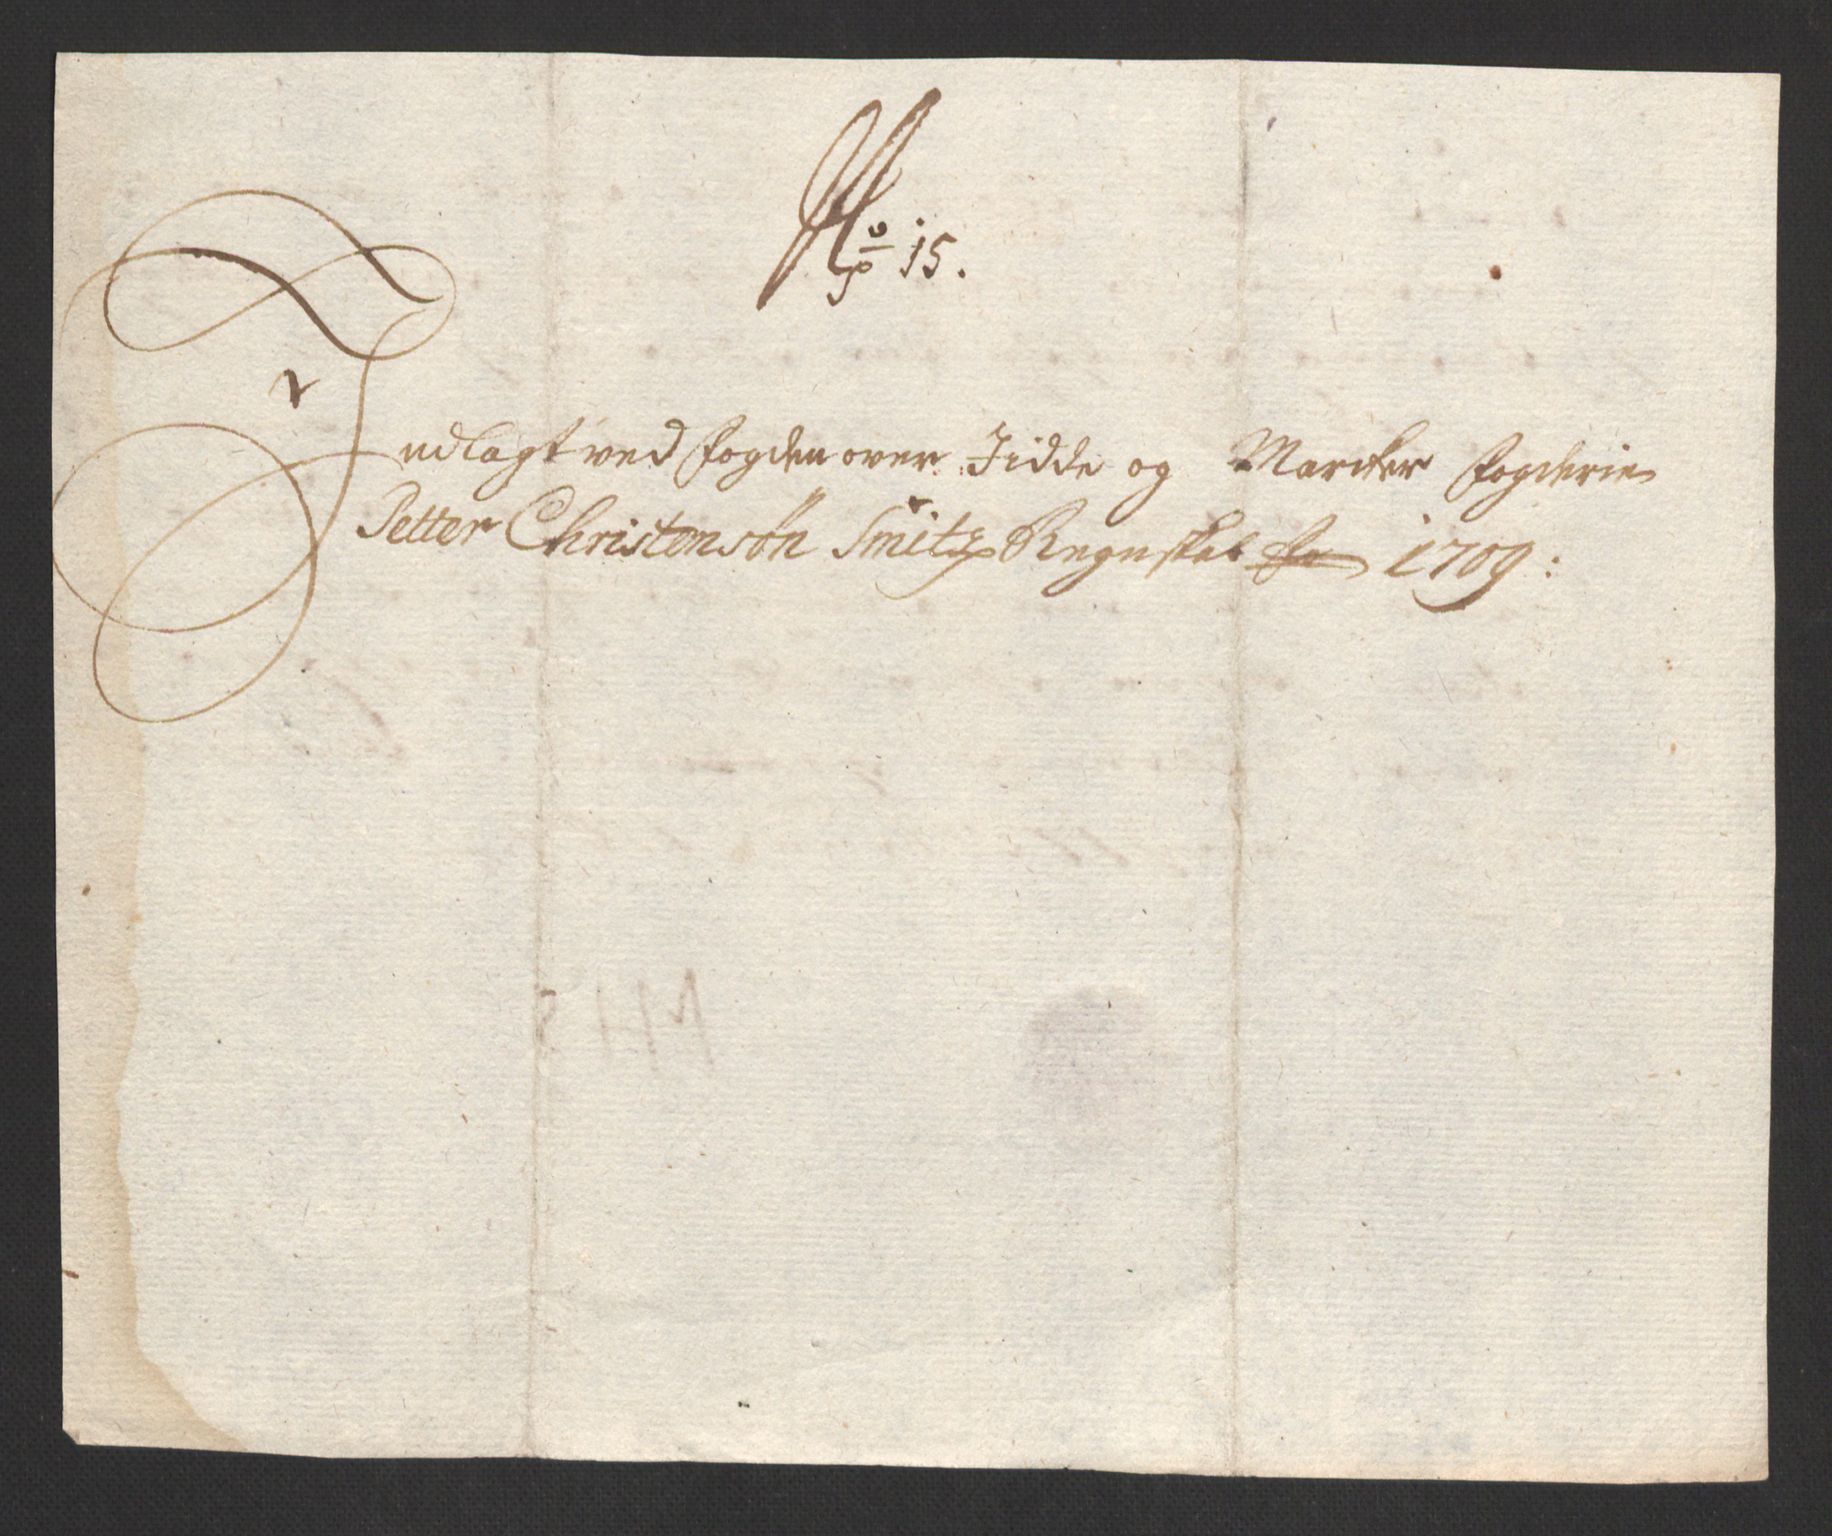 No 15.
Indlagt ved fogden over Jidde og Marcker fogderie
Petter Christensøn Smitz Regnskab for 1709: